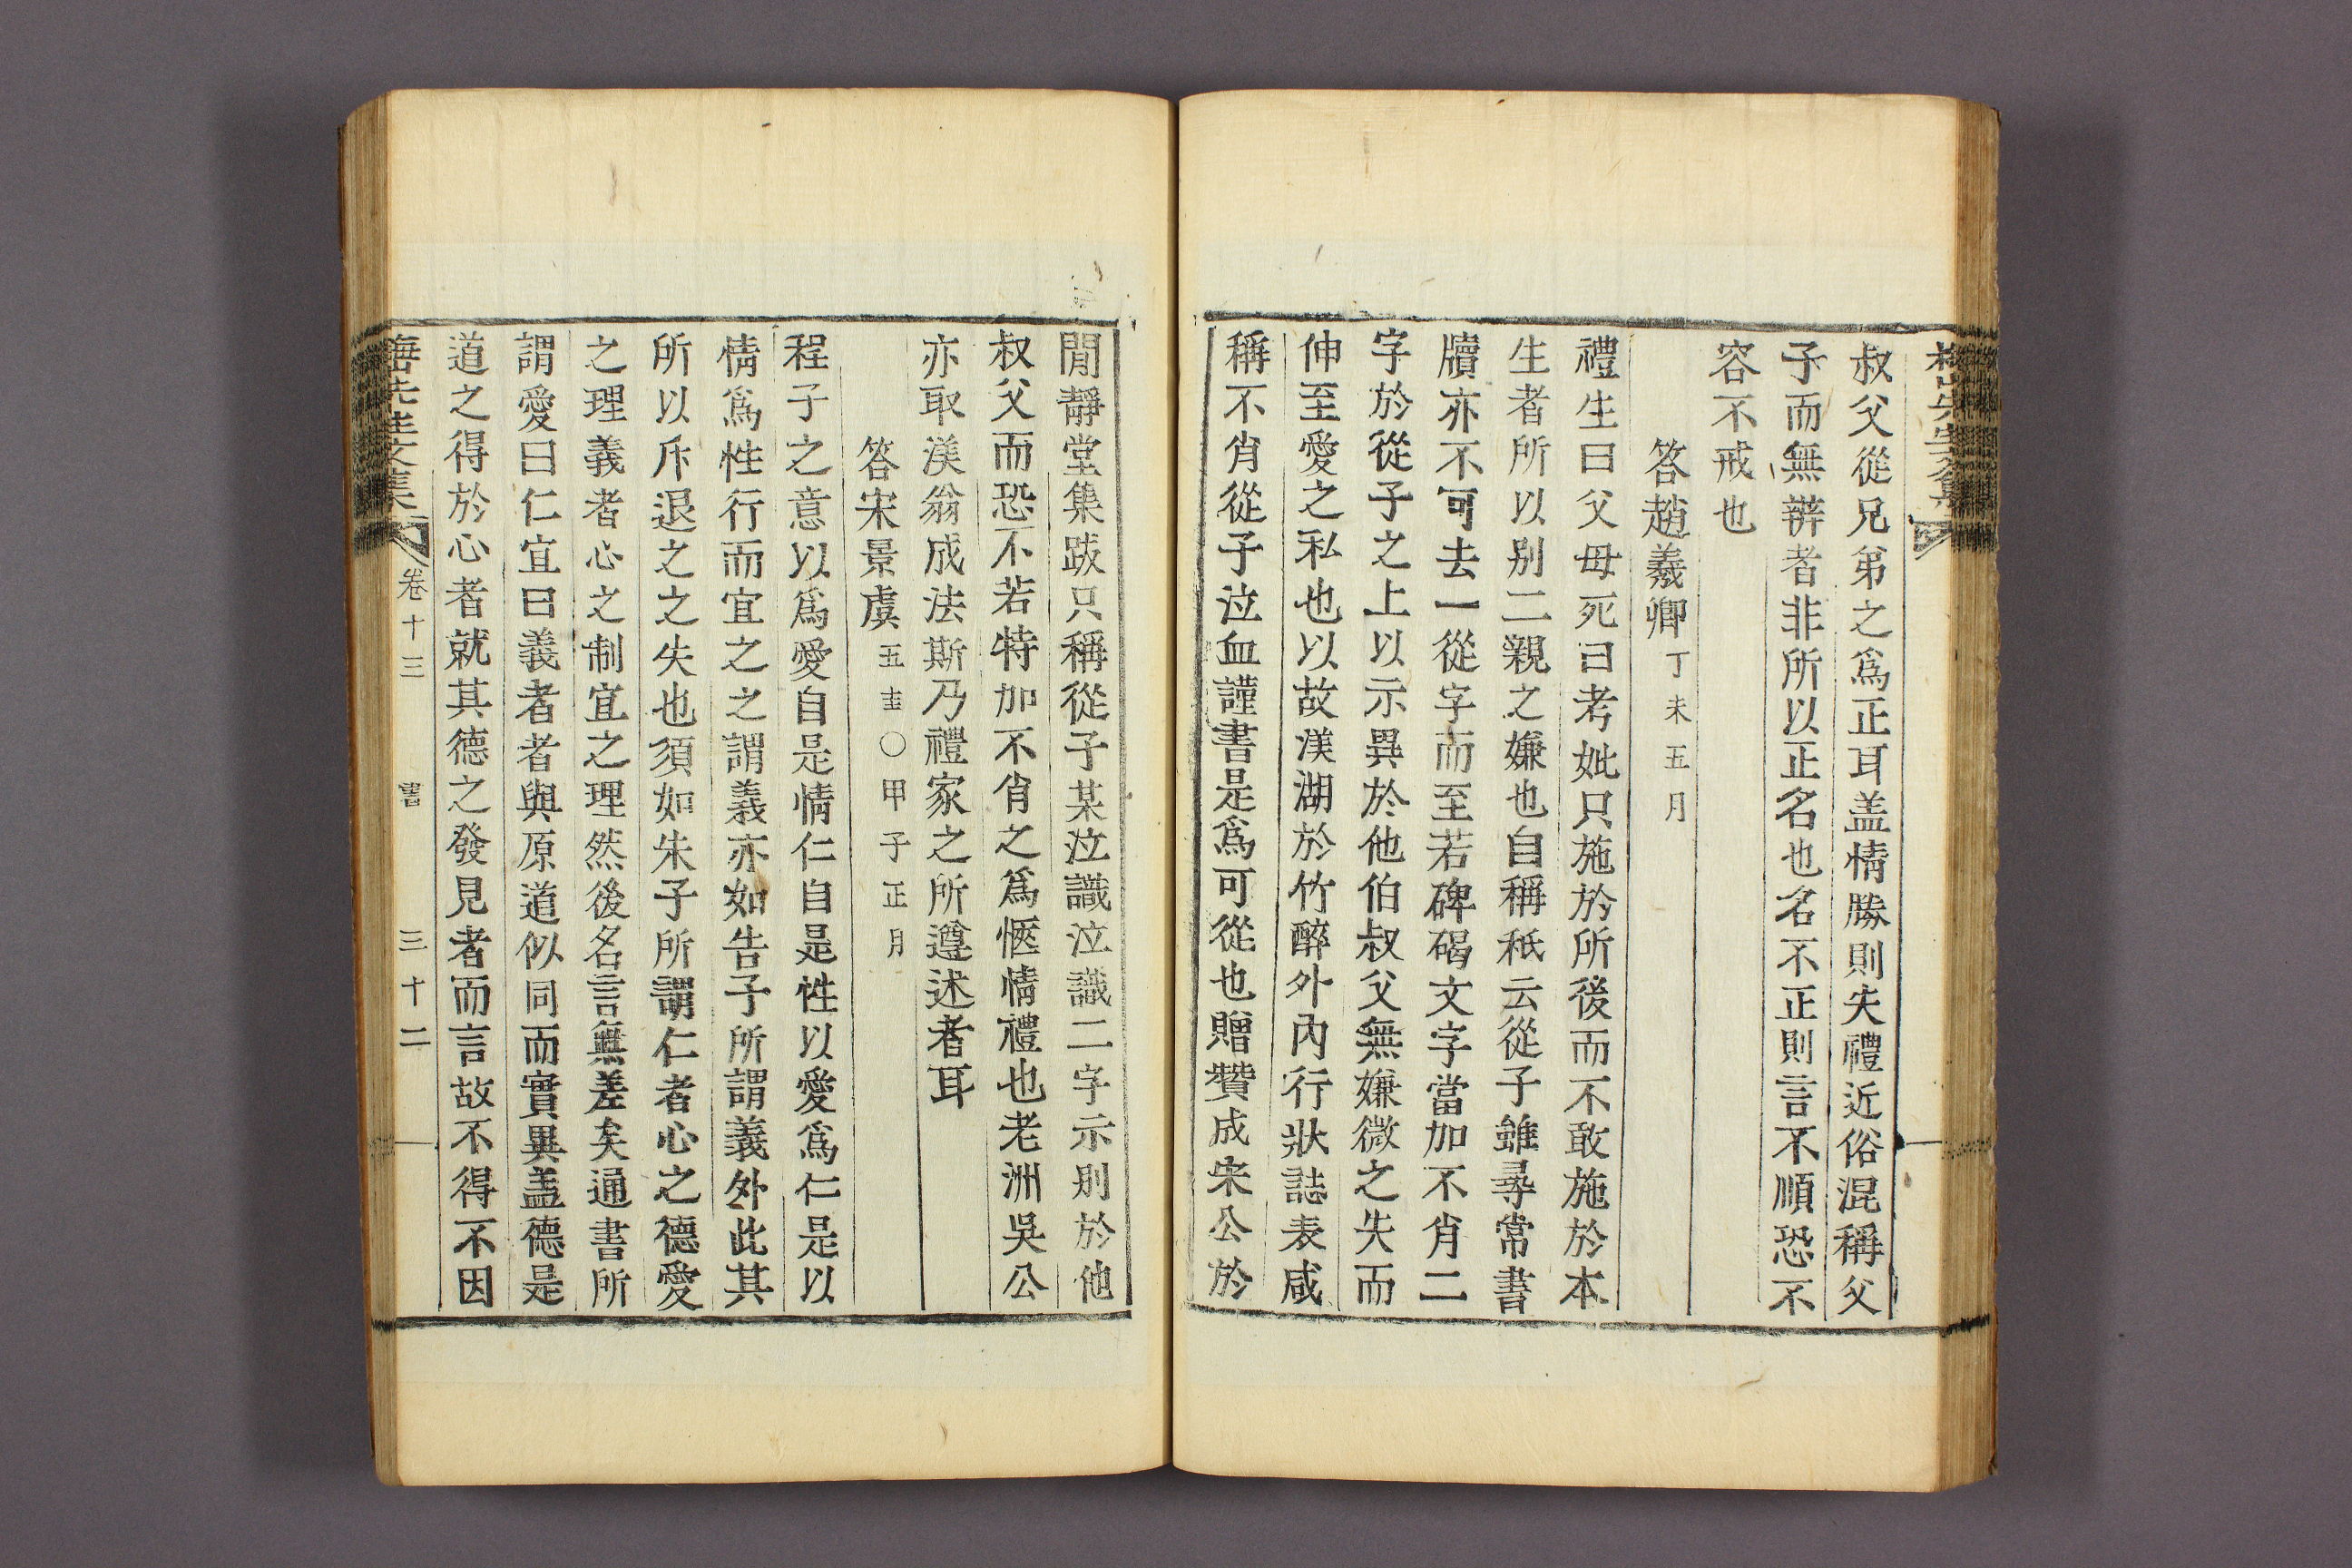 叔父從兄弟之爲正耳盖情勝則失禮近俗混稱父
子而無辨者非所以正名也名不正則言不順恐不
容不戒也
答趙羲卿丁未五月
禮生曰父母死曰考妣只施於所後而不敢施於本
生者所以别二親之嫌也自稱秪云從子雖尋常書
牘亦不可去一從字而至若碑碣文字當加不肖二
字於從子之上以示異於他伯叔父無嫌微之失而
伸至愛之私也以故渼湖於竹醉外內行狀誌表咸
稱不肖從子泣血謹書是爲可從也贈贊成宋公於
閒靜堂集跋只稱從子某泣識泣識二字示别於他
叔父而恐不若特加不肖之爲愜情禮也老洲吳公
亦取渼翁成法斯乃禮家之所遵述者耳
答宋景虞五圭○甲子正月
程子之意以爲愛自是情仁自是性以愛爲仁是以
情爲性行而宜之之謂義亦如告子所謂義外此其
所以斥退之之失也須如朱子所謂仁者心之德愛
之理義者心之制宜之理然後名言無差矣通書所
謂愛曰仁宜曰義者者與原道似同而實異盖德是
道之得於心者就其德之發見者而言故不得不因
先生文集 卷十三 書 三十二